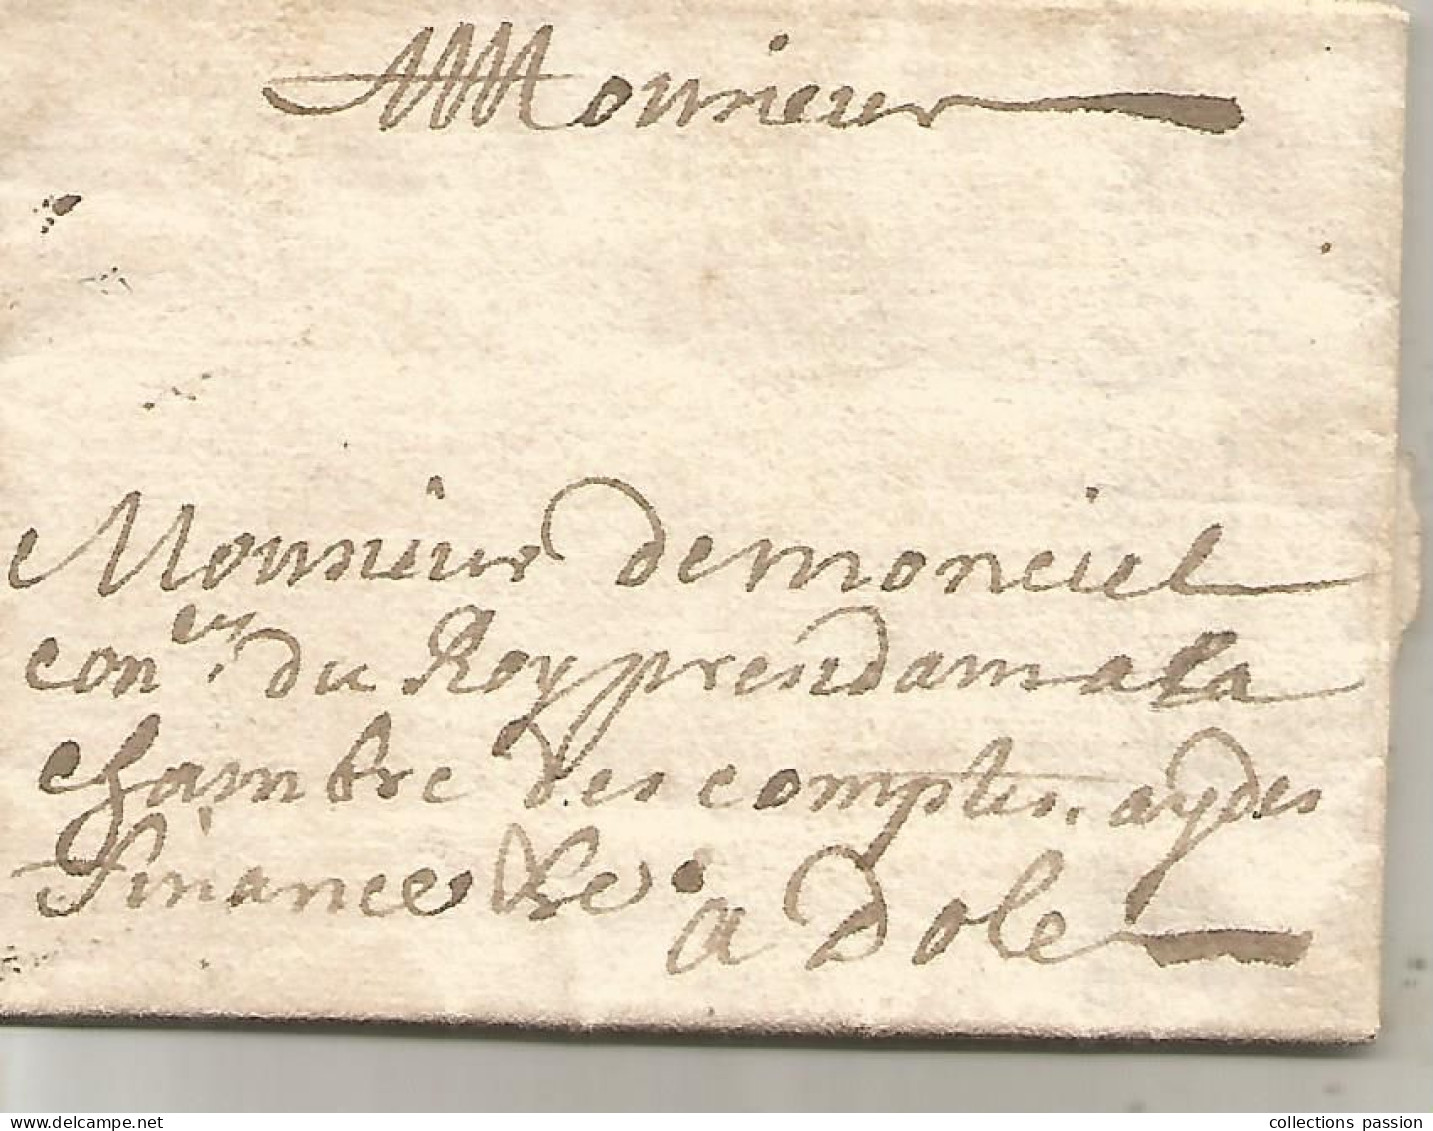 Monsieur
Monsieur de monciel
con.er du Roy presidam a la
chambre des comptes. aydes
finances &c a Dole
collections passion